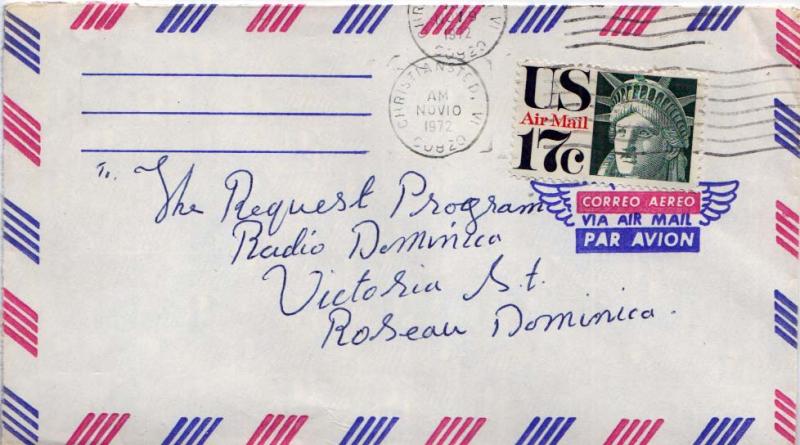 CHRISTIANSTED, VI
AM
NOV10
1972
00820
1972
00820
US
Air Mail
17c
CORREO AEREO
VIA AIR MAIL
PAR AVION
The Request Program
Radio Dominica
Victoria St.
Roseau Dominica.